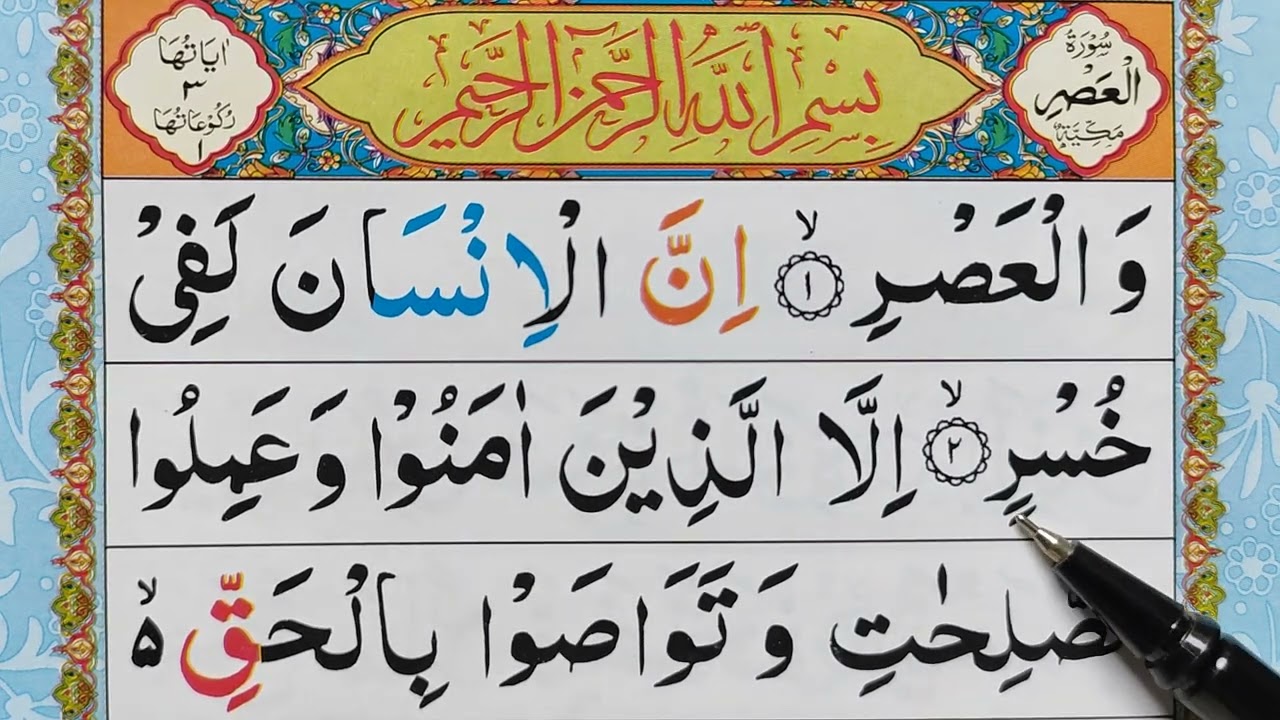 سُوْرَةُ
الْعَصْرِ
مَكِّيَّةٌ
بِسْمِ اللّٰهِ الرَّحْمٰنِ الرَّحِيْمِ
اٰيَاتُهَا
٣
رُكُوْعَاتُهَا
١
وَ الْعَصْرِ ۙ ١ اِنَّ الْاِنْسَانَ لَفِیْ
خُسْرٍ ۙ ٢ اِلَّا الَّذِيْنَ اٰمَنُوْا وَ عَمِلُوا
الصّٰلِحٰتِ وَ تَوَاصَوْا بِالْحَقِّ ۙ۬ ۵